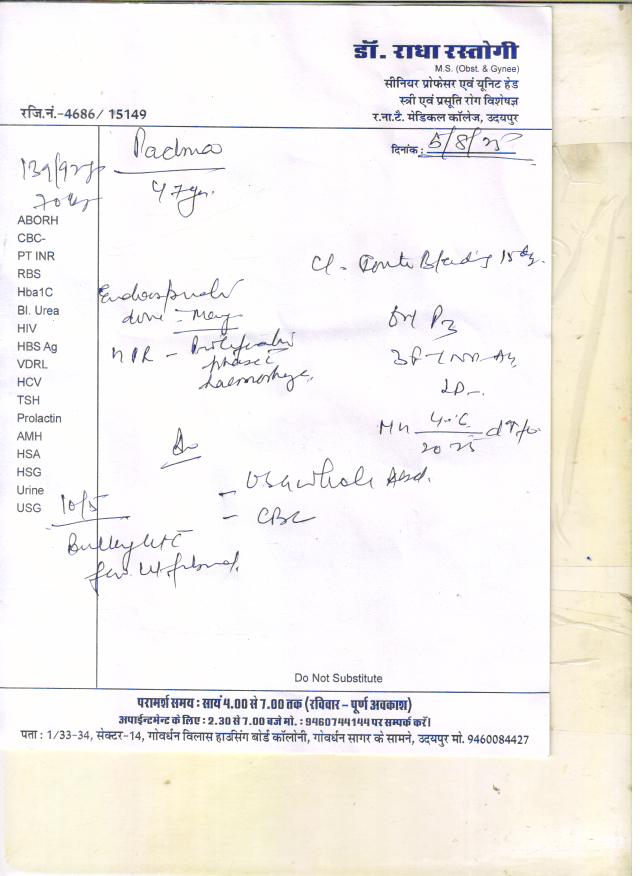 डॉ. राधा रस्तोगी
M.S. (Obst. & Gynee)
सीनियर प्रोफेसर एवं यूनिट हेड
स्त्री एवं प्रसूति रोग विशेषज्ञ
र.ना.टै. मेडिकल कॉलेज, उदयपुर
रजि.नं.-4686/ 15149
दिनांक : 5/8/25
Padma
47yr.
ABORH
CBC-
PT INR
RBS
Hba1C
Bl. Urea
HIV
HBS Ag
VDRL
HCV
TSH
Prolactin
AMH
HSA
HSG
Urine
USG
done - May
HPR - Proliferative
phase c
haemorrhage,
P3
- USG whole Abd.
- CBC
10/5
Bulky Ut c
Do Not Substitute
परामर्श समय : सायं 4.00 से 7.00 तक (रविवार - पूर्ण अवकाश)
अपाईन्टमेन्ट के लिए : 2.30 से 7.00 बजे मो. : 9460744144 पर सम्पर्क करें।
पता : 1/33-34, सेक्टर-14, गोवर्धन विलास हाउसिंग बोर्ड कॉलोनी, गोवर्धन सागर के सामने, उदयपुर मो. 9460084427